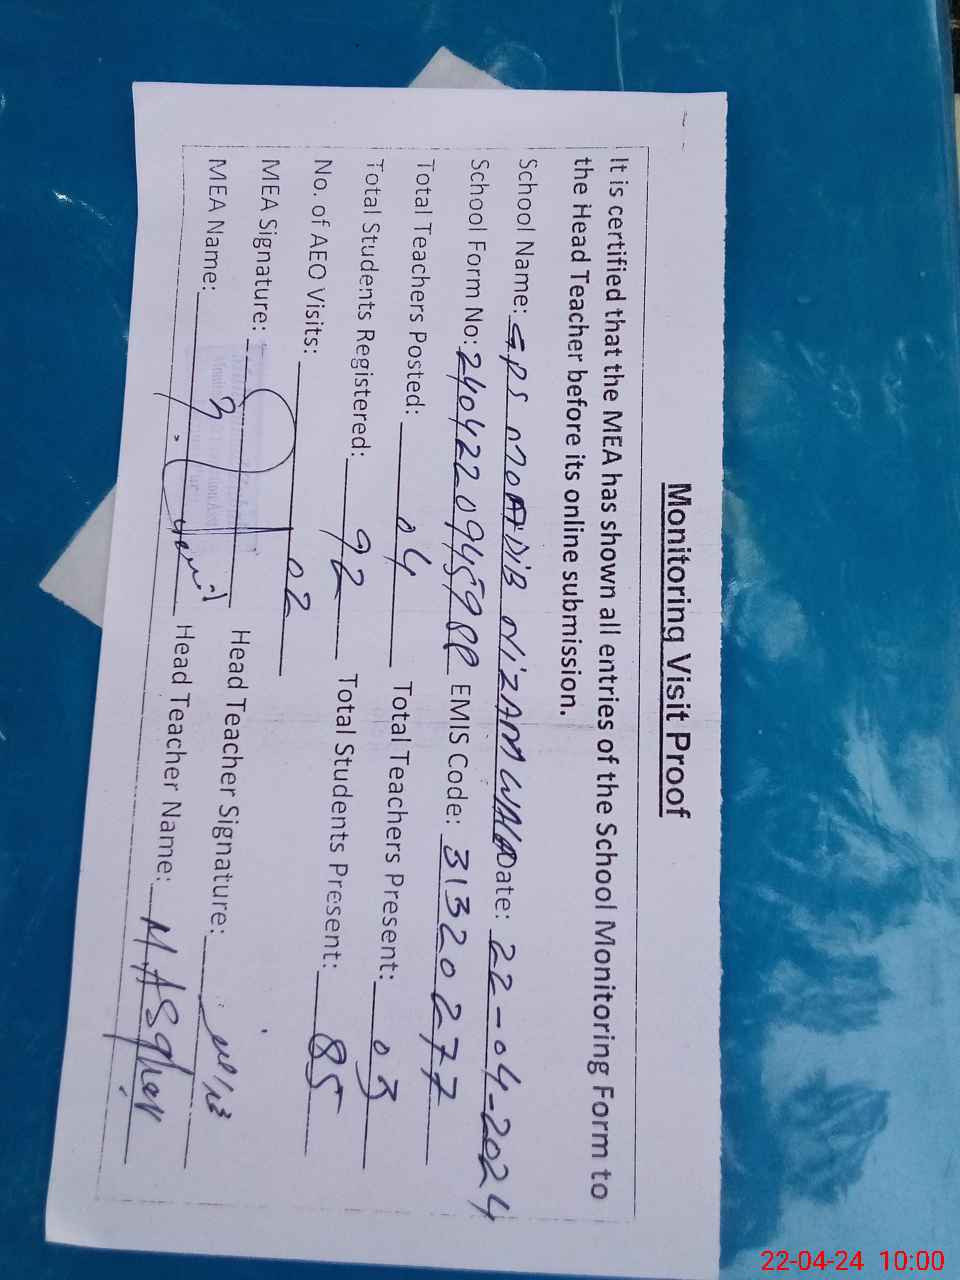 Monitoring Visit Proof
It is certified that the MEA has shown all entries of the School Monitoring Form to
the Head Teacher before its online submission.
School Name: GPS MOADIB NIZAM WALA Date: 22-04-2024
School Form No: 2404220945988 EMIS Code: 31320277
Total Teachers Posted: 04 Total Teachers Present: 03
Total Students Registered: 92 Total Students Present: 85
No. of AEO Visits: 02
MEA Signature: Head Teacher Signature:
MEA Name: Head Teacher Name: M. ASghar
22-04-24 10:00